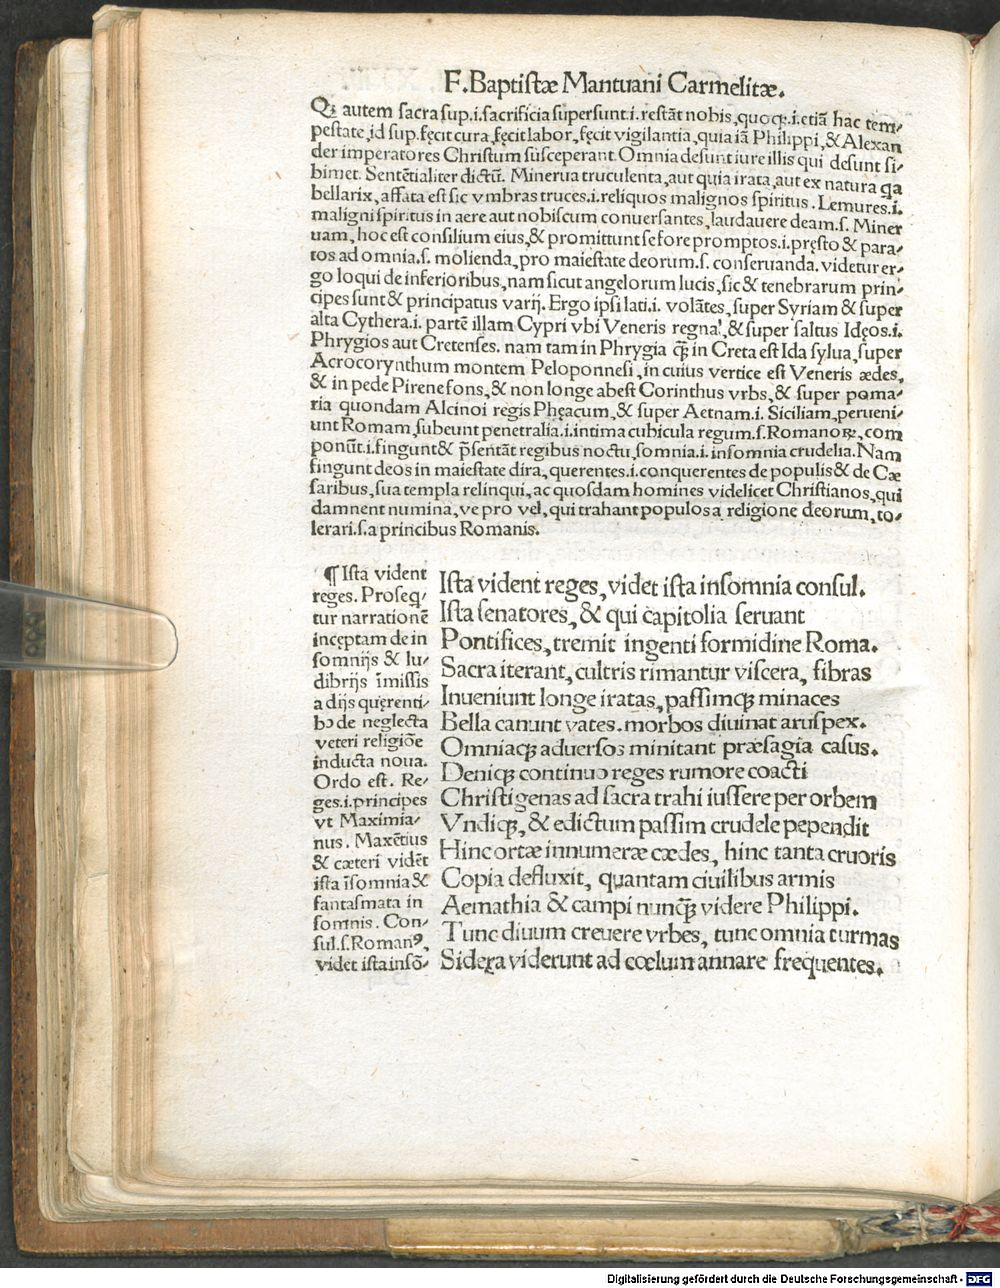 F. Baptistæ Mantuani Carmelitæ.
Qꝫ autem sacra sup.i.sacrificia supersunt.i.restāt nobis, quoqꝫ.i.etiā hac tem-
pestate, id sup. fęcit cura, fęcit labor, fęcit vigilantia, quia iā Philippi, & Alexan
der imperatores Christum susceperant. Omnia desunt iure illis qui desunt si-
bimet. Sentētialiter dictū. Minerua truculenta, aut quia irata, aut ex natura qa
bellarix, affata est sic vmbras truces.i.reliquos malignos spiritus. Lemures.i.
maligni spiritus in aere aut nobiscum conuersantes, laudauere deam.s. Miner
uam, hoc est consilium eius, & promittunt se fore promptos.i.pręsto & para-
tos ad omnia.s. molienda, pro maiestate deorum.s. conseruanda. videtur er-
go loqui de inferioribus, nam sicut angelorum lucis, sic & tenebrarum prin-
cipes sunt & principatus varij. Ergo ipsi lati.i. volātes, super Syriam & super
alta Cythera.i. partē illam Cypri vbi Veneris regna!, & super saltus Idęos.i.
Phrygios aut Cretenses. nam tam in Phrygia qꝫ in Creta est Ida sylua, super
Acrocorynthum montem Peloponnesi, in cuius vertice est Veneris ædes,
& in pede Pirene fons, & non longe abest Corinthus vrbs, & super poma-
ria quondam Alcinoi regis Phęacum, & super Aetnam.i. Siciliam, perueni-
unt Romam, subeunt penetralia.i.intima cubicula regum.s.Romanoꝝ, com
ponūt.i.fingunt & p̄sentāt regibus noctu, somnia.i. insomnia crudelia. Nam
fingunt deos in maiestate dira, querentes.i.conquerentes de populis & de Cæ
saribus, sua templa relinqui, ac quosdam homines videlicet Christianos, qui
damnent numina, ve pro vel, qui trahant populos a religione deorum, to-
lerari.s.a princibus Romanis.
¶ Ista vident
reges. Proseq-
tur narrationē
inceptam de in
somnijs & lu-
dibrijs īmissis
a dijs querenti-
bꝰ de neglecta
veteri religiōe
inducta noua.
Ordo est. Re-
ges.i.principes
vt Maximia-
nus. Maxētius
& cæteri vidēt
ista īsomnia &
fantasmata in
somnis. Con-
sul.s.Romanꝰ,
videt ista insō-
Ista vident reges, videt ista insomnia consul.
Ista senatores, & qui capitolia seruant
Pontifices, tremit ingenti formidine Roma.
Sacra iterant, cultris rimantur viscera, fibras
Inueniunt longe iratas, passimqꝫ minaces
Bella canunt vates. morbos diuinat aruspex.
Omniaqꝫ aduersos minitant præsagia casus.
Deniqꝫ continuo reges rumore coacti
Christigenas ad sacra trahi iussere per orbem
Vndiqꝫ, & edictum passim crudele pependit
Hinc ortæ innumeræ cædes, hinc tanta cruoris
Copia defluxit, quantam ciuilibus armis
Aemathia & campi nunqꝫ videre Philippi.
Tunc diuum creuere vrbes, tunc omnia turmas
Sidera viderunt ad cœlum annare frequentes.
Digitalisierung gefördert durch die Deutsche Forschungsgemeinschaft - DFG